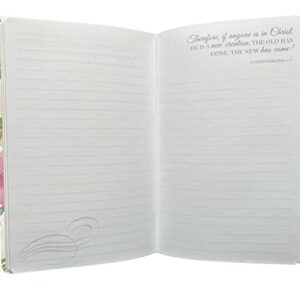 Therefore, if anyone is in Christ,
HE IS A new creation, THE OLD HAS
GONE, THE NEW has come!
2 CORINTHIANS 5:17